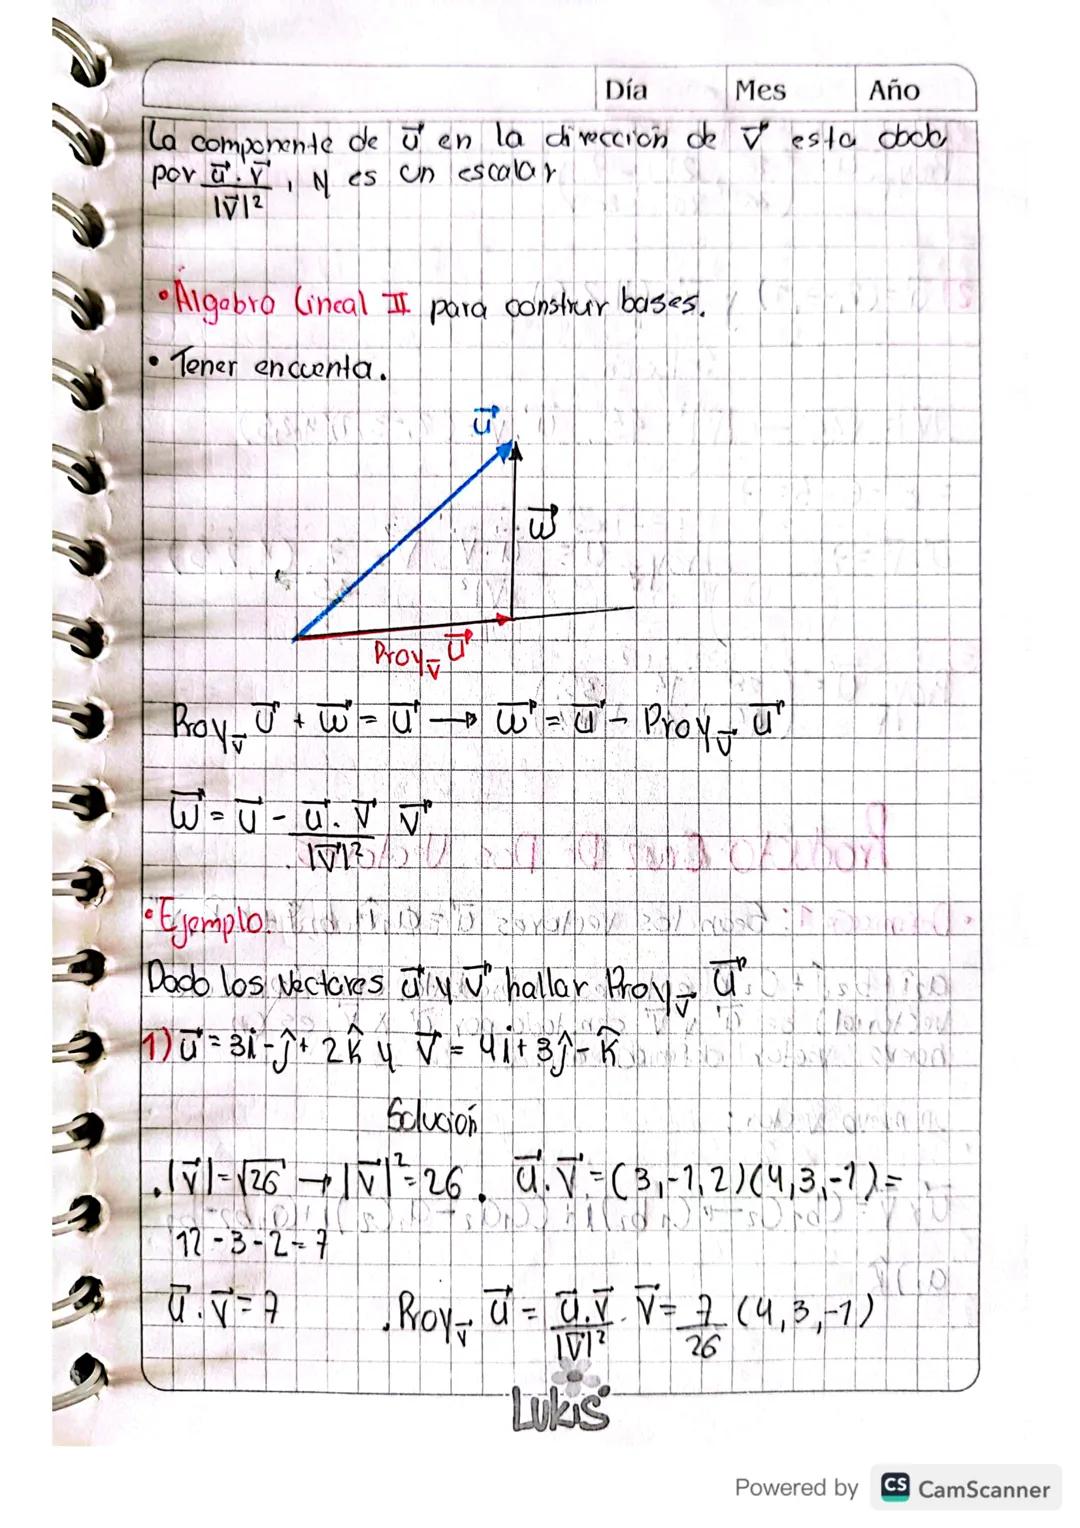 Día Mes Año
La componente de u⃗ en la dirección de v⃗ esta dada
por u⃗ . v⃗ / |v⃗|² , y es un escalar
• Álgebra Lineal II para construir bases.
• Tener encuenta.
u⃗
w⃗
Proy_v⃗ u⃗
Proy_v⃗ u⃗ + w⃗ = u⃗ → w⃗ = u⃗ - Proy_v⃗ u⃗
w⃗ = u⃗ - u⃗ . v⃗ / |v⃗|² v⃗
• Ejemplo.
Dado los vectores u⃗ y v⃗ hallar Proy_v⃗ u⃗
1) u⃗ = 3i - ĵ + 2k̂ y v⃗ = 4i + 3ĵ - k̂
Solución
. |v⃗| = √26 → |v⃗|² = 26 . u⃗ . v⃗ = (3,-1,2)(4,3,-1) =
12 - 3 - 2 = 7
u⃗ . v⃗ = 7 . Proy_v⃗ u⃗ = u⃗ . v⃗ / |v⃗|² . v⃗ = 7/26 (4,3,-1)
Lukis
Powered by CS CamScanner